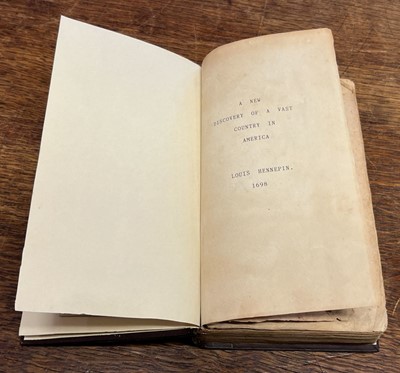 A NEW
DISCOVERY OF A VAST
COUNTRY IN
AMERICA
LOUIS HENNEPIN.
1698